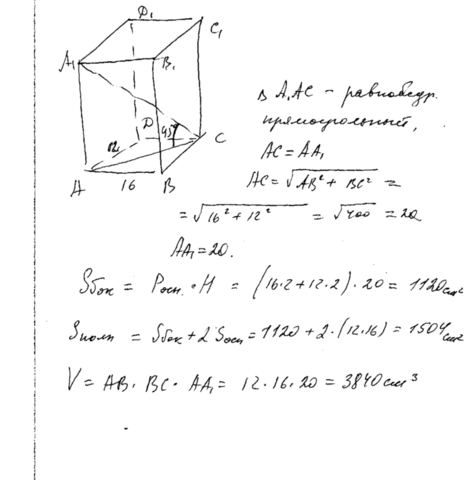 D₁
C₁
A₁
B₁
12
D
45°
C
A
16
B
Δ A₁AC – равнобедр.
прямоугольный,
AC = AA₁
AC = √AB² + BC² =
= √16² + 12² = √400 = 20
AA₁ = 20.
Sбок = Pосн. · H = (16·2 + 12·2) · 20 = 1120 см²
Sполн = Sбок + 2 Sосн = 1120 + 2 · (12·16) = 1504 см²
V = AB · BC · AA₁ = 12 · 16 · 20 = 3840 см³